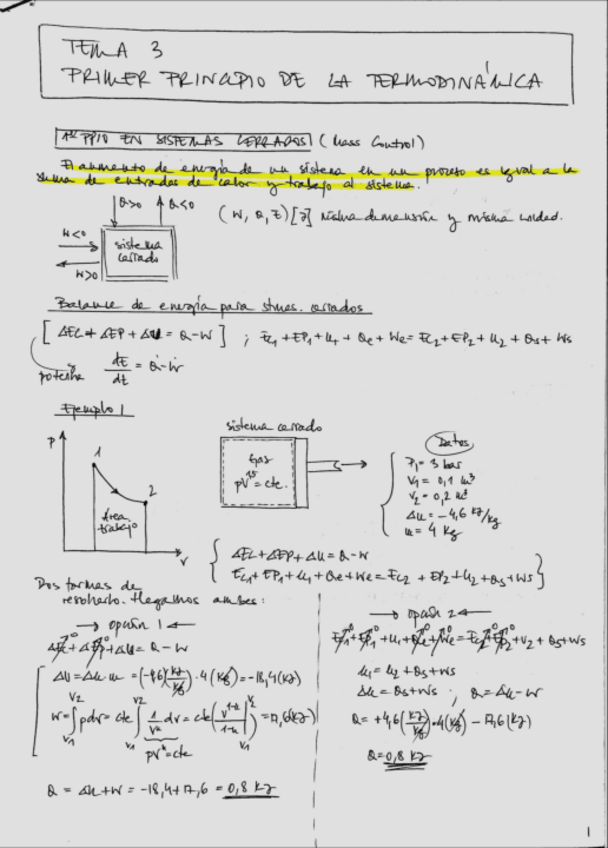 TEMA 3
PRIMER PRINCIPIO DE LA TERMODINÁMICA
1er PPIO EN SISTEMAS CERRADOS (Mass Control)
El aumento de energía de un sistema en un proceso es igual a la
suma de entradas de calor y trabajo al sistema.
Q>0 Q<0
(W, Q, E) [J] misma dimensión y misma unidad.
W<0
W>0
sistema
cerrado
Balance de energía para stmas. cerrados
[ ΔEC + ΔEP + ΔU = Q-W ] ; Ec1 + EP1 + U1 + Qe + We = Ec2 + EP2 + U2 + Qs + Ws
potencia dE/dt = Q̇-Ẇ
Ejemplo 1
P
1
2
Área
trabajo
V
sistema cerrado
Gas
pV^1,5 = cte.
Datos
P1 = 3 bar
V1 = 0,1 m³
V2 = 0,2 m³
Δu = -4,6 KJ/Kg
m = 4 Kg
ΔEC + ΔEP + ΔU = Q-W
Ec1 + EP1 + U1 + Qe + We = Ec2 + EP2 + U2 + Qs + Ws
Dos formas de
resolverlo. Hagamos ambas:
→ opción 1 ←
ΔEC + ΔEP + ΔU = Q-W
ΔU = Δu·m = (-4,6 (KJ/Kg))·4 (Kg) = -18,4 (KJ)
W = ∫ pdv = cte ∫ 1/v^n dv = cte (v^1-n / 1-n) = 17,6 (KJ)
pV^n = cte
Q = ΔU + W = -18,4 + 17,6 = 0,8 KJ
→ opción 2 ←
Ec1 + EP1 + U1 + Qe + We = Ec2 + EP2 + U2 + Qs + Ws
U1 = U2 + Qs + Ws
ΔU = Qs + Ws ; Q = ΔU-W
Q = +4,6 (KJ/Kg)·4 (Kg) - 17,6 (KJ)
Q = 0,8 KJ
1